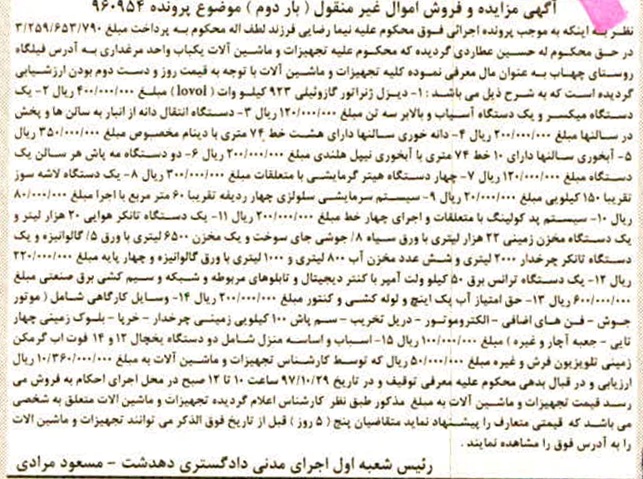 آگهی مزایده و فروش اموال غیر منقول ( بار دوم ) موضوع پرونده ۹۶۰۹۵۴
نظر به اینکه به موجب پرونده اجرائی فوق محکوم علیه نیما رضایی فرزند لطف اله محکوم به پرداخت مبلغ ۳/۲۵۹/۶۵۳/۷۹۰
در حق محکوم له حسین عطاردی گردیده که محکوم علیه تجهیزات و ماشین آلات یکباب واحد مرغداری به آدرس فیلگاه
روستای چهاب به عنوان مال معرفی نموده کلیه تجهیزات و ماشین آلات با توجه به قیمت روز و دست دوم بودن ارزشیابی
گردیده است که به شرح ذیل می باشد : ۱- دیزل ژنراتور گازوئیلی ۹۲۳ کیلو وات ( lovol ) مبلغ ۴۰۰/۰۰۰/۰۰۰ ریال ۲- یک
دستگاه میکسر و یک دستگاه آسیاب و بالابر سه تن مبلغ ۱۲۰/۰۰۰/۰۰۰ ریال ۳- دستگاه انتقال دانه از انبار به سالن ها و پخش
در سالنها مبلغ ۲۰۰/۰۰۰/۰۰۰ ریال ۴- دانه خوری سالنها دارای هشت خط ۷۴ متری با دینام مخصوص مبلغ ۳۵۰/۰۰۰/۰۰۰ ریال
۵- آبخوری سالنها دارای ۱۰ خط ۷۴ متری با آبخوری نیپل هلندی مبلغ ۲۰۰/۰۰۰/۰۰۰ ریال ۶- دو دستگاه مه پاش هر سالن یک
دستگاه مبلغ ۱۲۰/۰۰۰/۰۰۰ ریال ۷- چهار دستگاه هیتر گرمایشی با متعلقات مبلغ ۳۰۰/۰۰۰/۰۰۰ ریال ۸- یک دستگاه لاشه سوز
تقریبا ۱۵۰ کیلویی مبلغ ۲۰/۰۰۰/۰۰۰ ریال ۹- سیستم سرمایشی سلولزی چهار ردیفه تقریبا ۶۰ متر مربع با اجرا مبلغ ۸۰/۰۰۰/۰۰۰
ریال ۱۰- سیستم پد کولینگ با متعلقات و اجرای چهار خط مبلغ ۲۰۰/۰۰۰/۰۰۰ ریال ۱۱- یک دستگاه تانکر هوایی ۲۰ هزار لیتر و
یک دستگاه مخزن زمینی ۲۲ هزار لیتری با ورق سیاه ۸/ جوشی جای سوخت و یک مخزن ۶۵۰۰ لیتری با ورق ۵/ گالوانیزه و یک
دستگاه تانکر چرخدار ۲۰۰۰ لیتری و شش عدد مخزن آب ۸۰۰ لیتری و ۱۰۰۰ لیتری با ورق گالوانیزه و چهار پایه مبلغ ۲۲۰/۰۰۰/۰۰۰
ریال ۱۲- یک دستگاه ترانس برق ۵۰ کیلو ولت آمپر با کنتر دیجیتال و تابلوهای مربوطه و شبکه و سیم کشی برق صنعتی مبلغ
۶۰۰/۰۰۰/۰۰۰ ریال ۱۳- حق امتیاز آب یک اینچ و لوله کشی و کنتور مبلغ ۲۰۰/۰۰۰/۰۰۰ ریال ۱۴- وسایل کارگاهی شامل ( موتور
جوش - فن های اضافی - الکتروموتور - دریل تخریب - سم پاش ۱۰۰ کیلویی زمینی چرخدار - خرپا - بلوک زمینی چهار
تایی - جعبه آچار و غیره ) مبلغ ۱۰۰/۰۰۰/۰۰۰ ریال ۱۵- اسباب و اساسه منزل شامل دو دستگاه یخچال ۱۲ و ۱۴ فوت اب گرمکن
زمینی تلویزیون فرش و غیره مبلغ ۵۰/۰۰۰/۰۰۰ ریال که توسط کارشناس تجهیزات و ماشین آلات به مبلغ ۱۰/۳۶۰/۰۰۰/۰۰۰ ریال
ارزیابی و در قبال بدهی محکوم علیه معرفی توقیف و در تاریخ ۹۷/۱۰/۲۹ ساعت ۱۰ تا ۱۲ صبح در محل اجرای احکام به فروش می
رسد قیمت تجهیزات و ماشین آلات به مبلغ مذکور طبق نظر کارشناس اعلام گردیده تجهیزات و ماشین الات متعلق به شخصی
می باشد که قیمتی متعارف را پیشنهاد نماید متقاضیان پنج ( ۵ روز ) قبل از تاریخ فوق الذکر می توانند تجهیزات و ماشین الات
را به آدرس فوق را مشاهده نمایند .
رئیس شعبه اول اجرای مدنی دادگستری دهدشت - مسعود مرادی